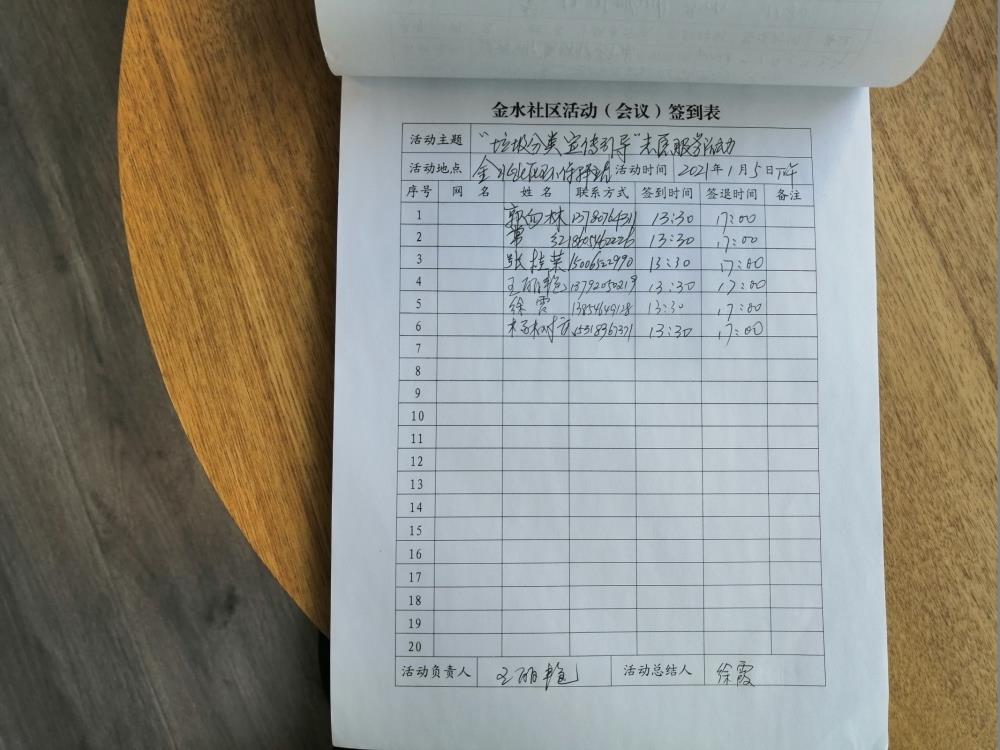 金水社区活动（会议）签到表
活动主题 "垃圾分类宣传引导"志愿服务活动
活动地点 金水社区 活动时间 2021年1月5日下午
序号 网 名 姓 名 联系方式 签到时间 签退时间 备注
1 林 13:30 17:00
2 18605462226 13:30 17:00
3 张桂荣 15006522990 13:30 17:00
4 王丽艳 13792050219 13:30 17:00
5 徐霞 13854649128 13:30 17:00
6 15318367371 13:30 17:00
7
8
9
10
11
12
13
14
15
16
17
18
19
20
活动负责人 王丽艳 活动总结人 徐霞